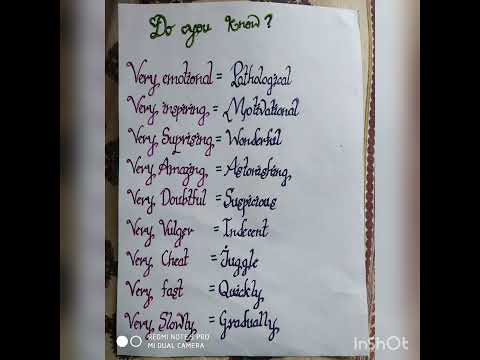 Do you know?
Very emotional = Pathological
Very inspiring = Motivational
Very Suprising = Wonderful
Very Amazing = Astonishing
Very Doubtful = Suspicious
Very Vulger = Indecent
Very Cheat = Juggle
Very fast = Quickly
Very Slowly = Gradually
REDMI NOTE 5 PRO
MI DUAL CAMERA
InShOt